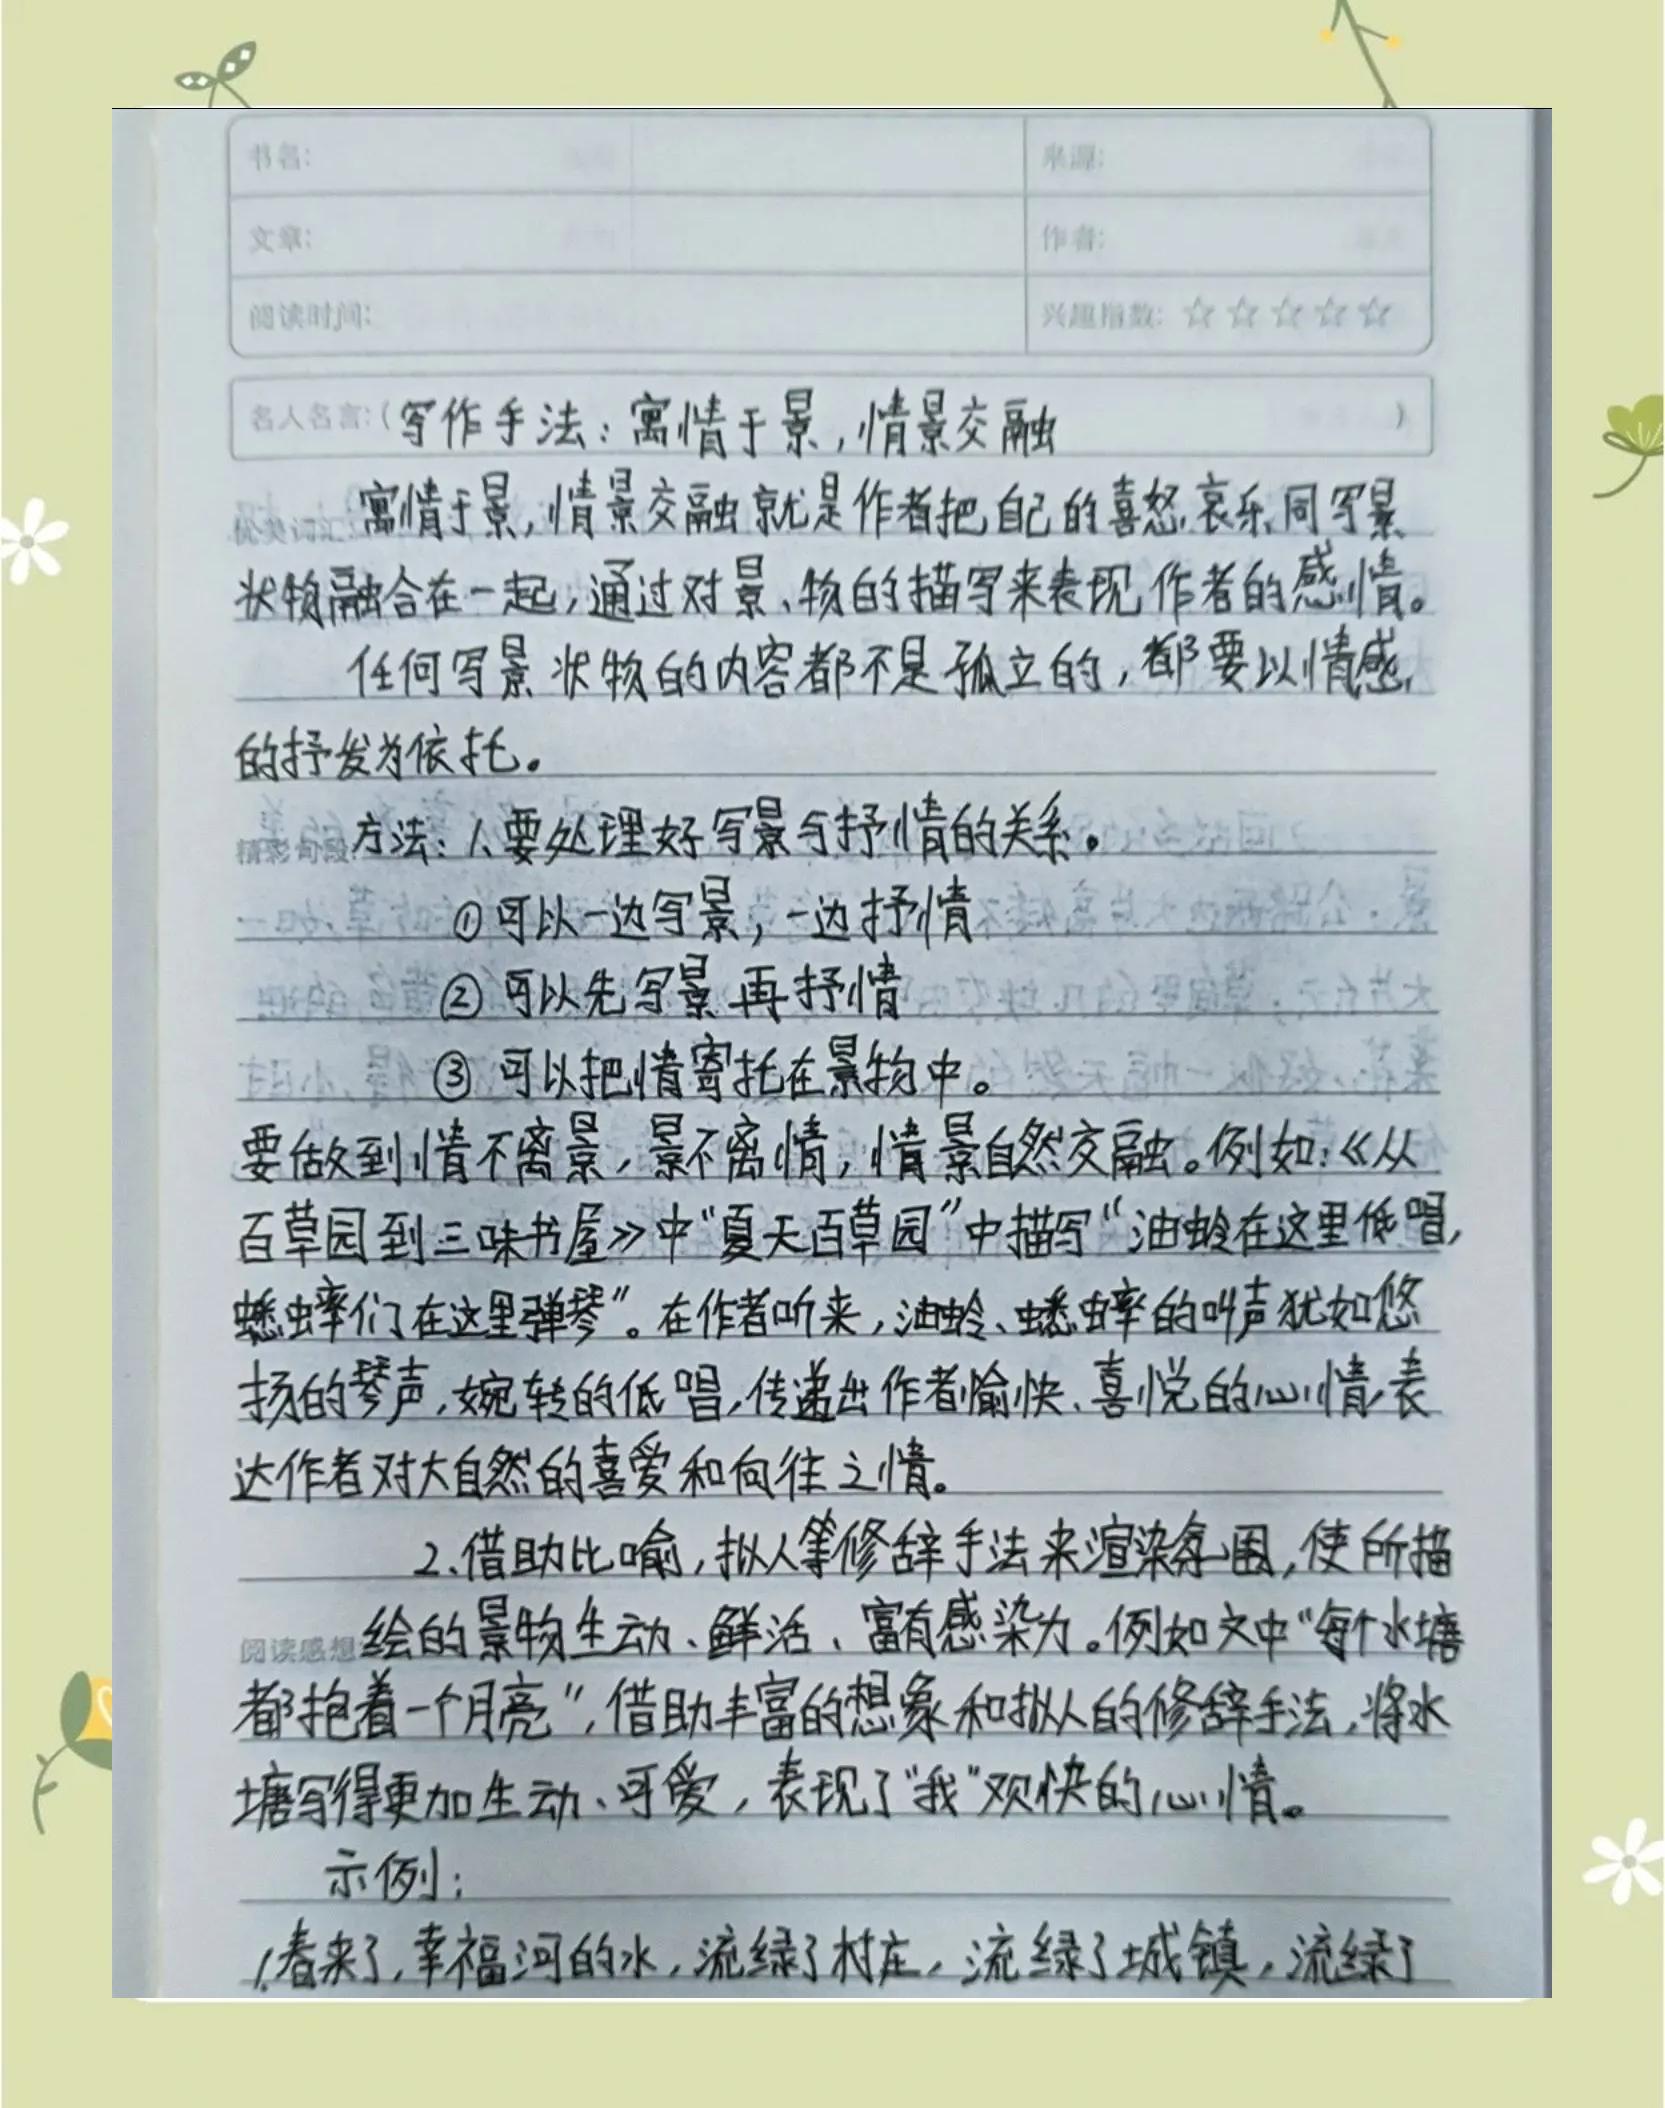 书名:
来源:
文章:
作者:
阅读时间:
兴趣指数: ☆ ☆ ☆ ☆ ☆
名人名言:( 写作手法:寓情于景,情景交融 )
寓情于景,情景交融就是作者把自己的喜怒哀乐同写景
状物融合在一起,通过对景、物的描写来表现作者的感情。
任何写景状物的内容都不是孤立的,都要以情感
的抒发为依托。
精彩句段 方法:1、要处理好写景与抒情的关系。
①可以一边写景,一边抒情
②可以先写景再抒情
③可以把情寄托在景物中。
要做到情不离景,景不离情,情景自然交融。例如:《从
百草园到三味书屋》中“夏天百草园”中描写“油蛉在这里低唱,
蟋蟀们在这里弹琴”。在作者听来,油蛉、蟋蟀的叫声犹如悠
扬的琴声,婉转的低唱,传递出作者愉快、喜悦的心情,表
达作者对大自然的喜爱和向往之情。
2、借助比喻,拟人等修辞手法来渲染氛围,使所描
阅读感想 绘的景物生动、鲜活、富有感染力。例如文中“每个水塘
都抱着一个月亮”,借助丰富的想象和拟人的修辞手法,将水
塘写得更加生动、可爱,表现了“我”欢快的心情。
示例:
1.春来了,幸福河的水,流绿了村庄,流绿了城镇,流绿了